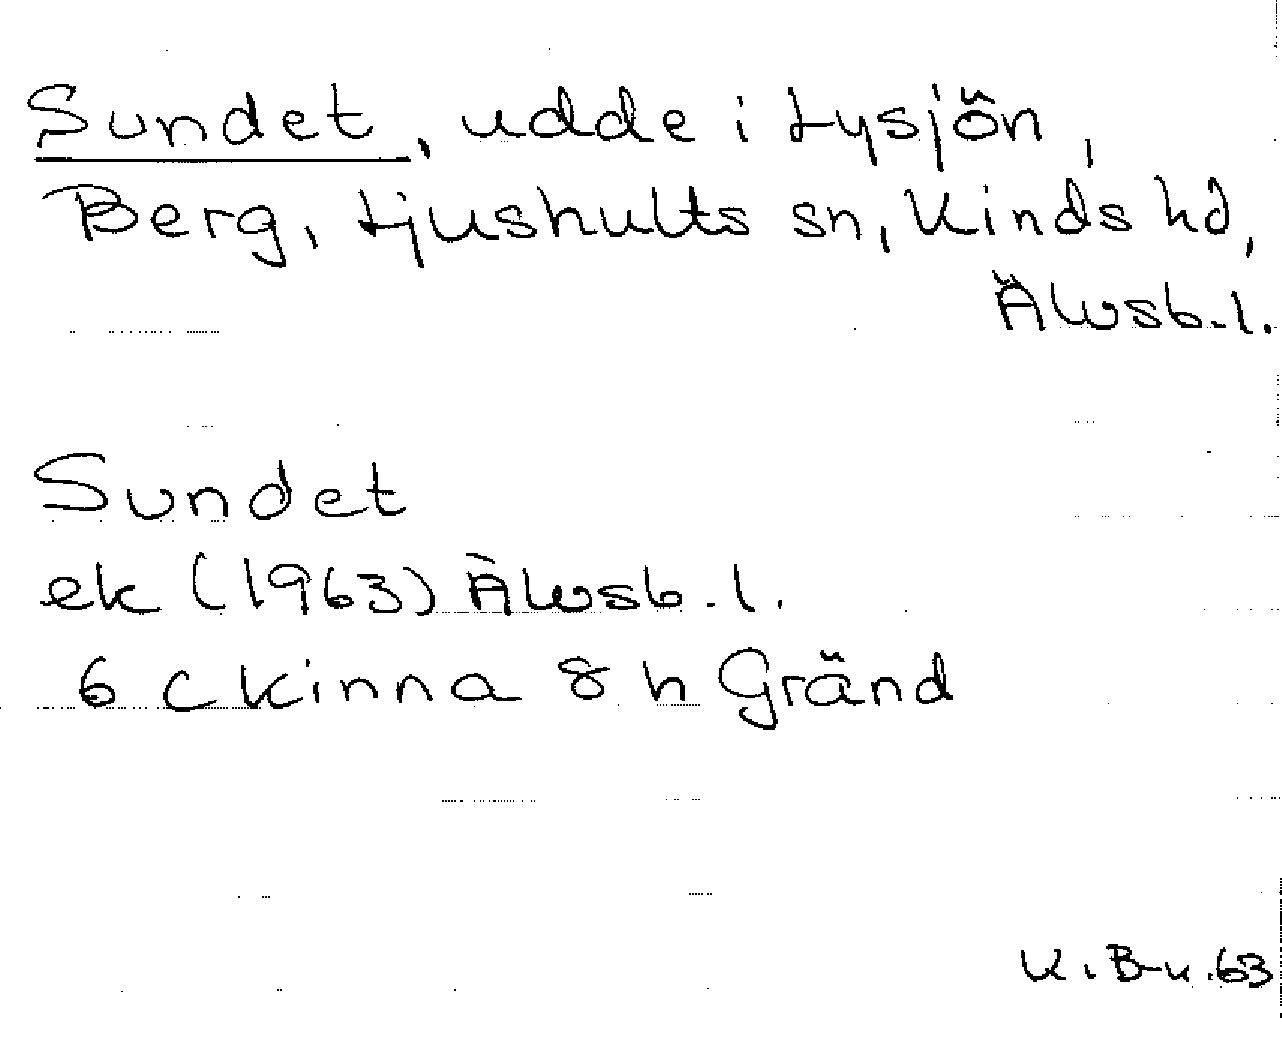 Sundet, udde i Lysjön,
Berg, Ljushults sn, Kinds hd,
Älvsb.l.
Sundet
ek (1963) Älvsb.l.
6 C Kinna 8 h Gränd
K.B-k.63